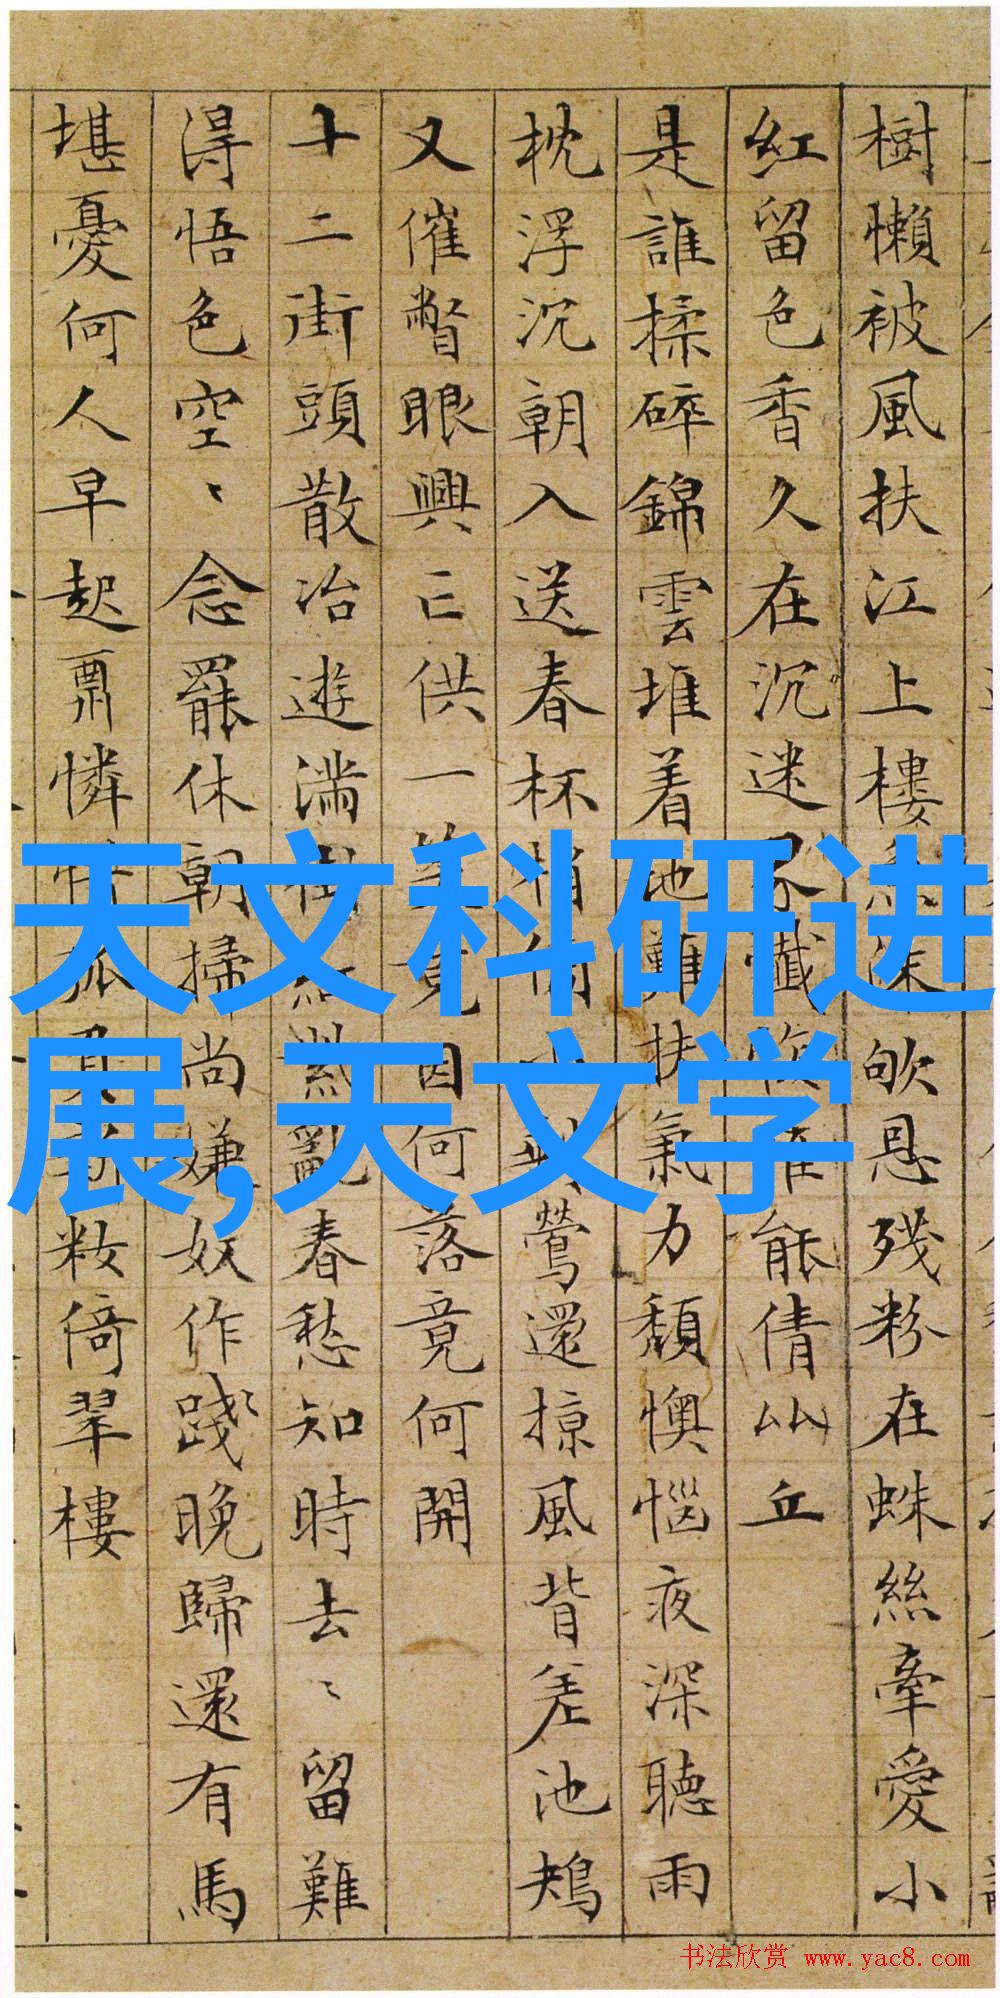 樹懶被風扶江上樓
欹恩殘粉在蛛絲牽愛小
紅留色香久在沉迷
懺
能倩山丘
是誰揉碎錦雲堆着地難扶氣力頹懊惱夜深聽雨
枕浮沉朝入送春杯
鶯還掠風背差池鳩
又催瞥眼興亡供一
因何落竟何開
十二街頭散冶遊滿樹
亂春愁知時去〻留難
得悟色空〻念罷休朝掃尚嫌奴作踐〻晚歸還有馬
堪憂何人早起
憐
孤
妝倚翠樓
天文科研进
展,天文学
书法欣赏 www.yac8.com